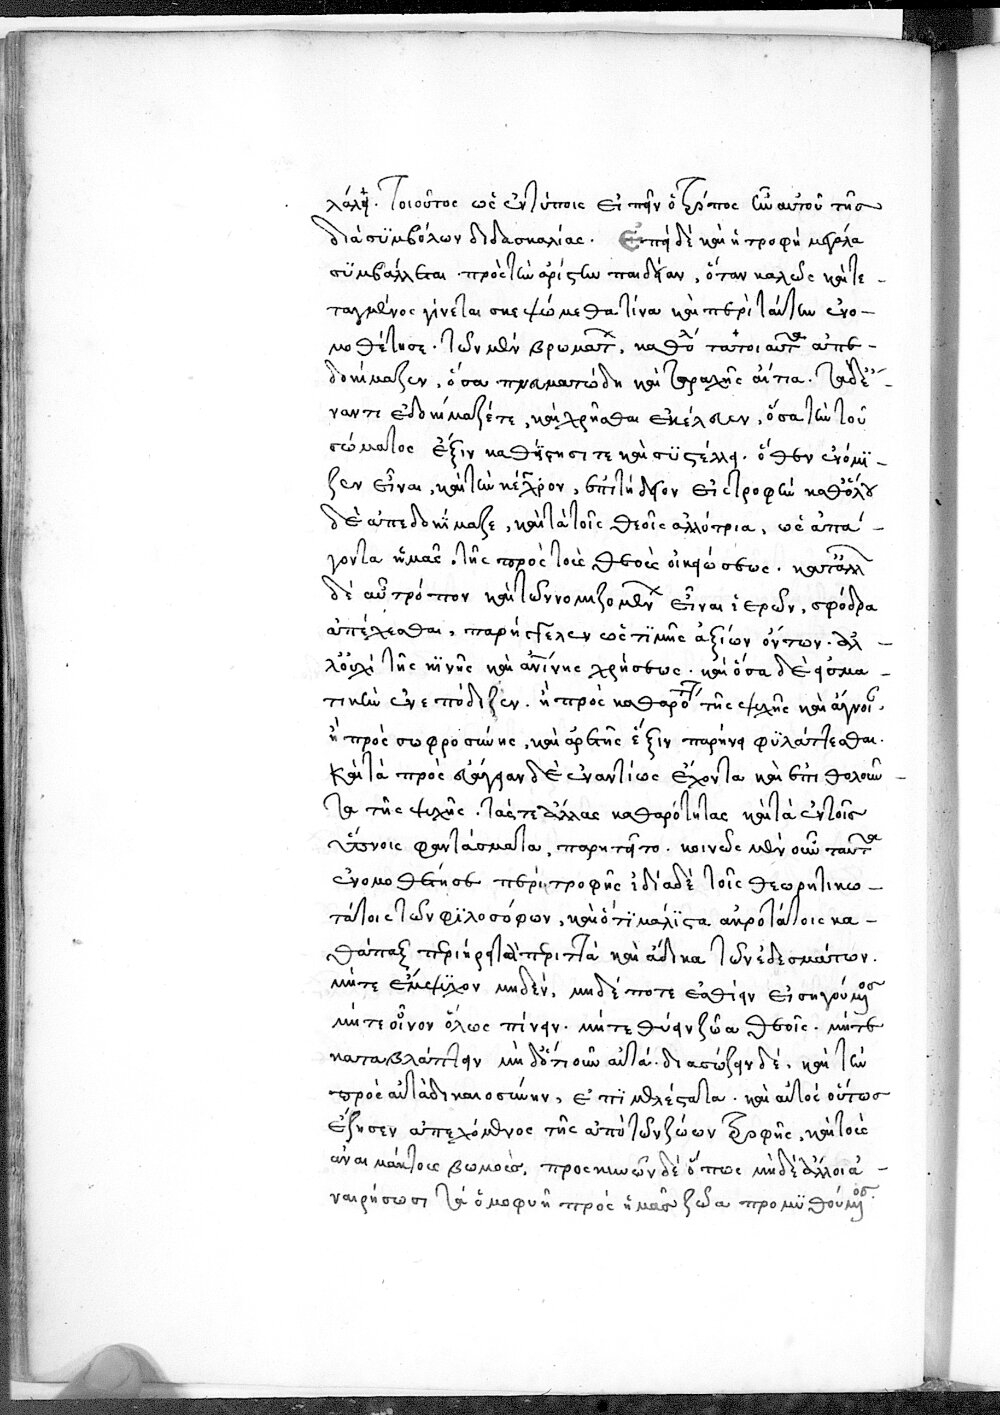 λάλει. Τοιοῦτος ὡς ἐν τύποις εἰπεῖν ὁ τρόπος ἦν αὐτοῦ τῆς
διὰ συμβόλων διδασκαλίας. Ἐπεὶ δὲ καὶ ἡ τροφὴ μεγάλα
συμβάλλεται πρὸς τὴν ἀρίστην παιδείαν, ὅταν καλῶς καὶ τε-
ταγμένως γίνεται σκεψώμεθα τίνα καὶ περὶ ταύτην ἐνο-
μοθέτησε. τῶν μὲν βρωμάτων, καθόλου τὰ τοιαῦτα ἀπε-
δοκίμαζεν, ὅσα πνευματώδη καὶ ταραχῆς αἴτια. τὰ δὲ ἐ-
ναντί ἐδοκίμαζέ τε, καὶ χρῆσθαι ἐκέλευεν, ὅσα τὴν τοῦ
σώματος ἕξιν καθίστησί τε καὶ συστέλλει. ὅθεν ἐνόμι-
ζεν εἶναι, καὶ τὴν κέγχρον, ἐπιτήδειον εἰς τροφὴν καθόλου
δὲ ἀπεδοκίμαζε, καὶ τὰ τοῖς θεοῖς ἀλλότρια, ὡς ἀπά-
γοντα ἡμᾶς, τῆς πρὸς τοὺς θεοὺς οἰκειώσεως. κατ' ἄλλον
δὲ αὖ τρόπον καὶ τῶν νομιζομένων εἶναι ἱερῶν, σφόδρα
ἀπέχεσθαι, παρήγγελεν ὡς τιμῆς ἀξίων ὄντων. ἀλ-
λ' οὐχὶ τῆς κοινῆς καὶ ἀνθρωπίνης χρήσεως. καὶ ὅσα δὲ εἰς μα-
τικὴν ἐνεπόδιζεν. ἢ πρὸς καθαρότητα τῆς ψυχῆς καὶ ἁγνείαν,
ἢ πρὸς σωφροσύνης, καὶ ἀρετῆς ἕξιν παρήνει φυλάττεσθαι.
καὶ τὰ πρὸς εὐάγειαν δὲ ἐναντίως ἔχοντα καὶ ἐπιθολοῦν-
τα τῆς ψυχῆς, τάς τε ἄλλας καθαρότητας καὶ τὰ ἐν τοῖς
ὕπνοις φαντάσματα, παρῃτεῖτο. κοινῶς μὲν οὖν ταῦτα
ἐνομοθέτησε περὶ τροφῆς ἰδίᾳ δὲ τοῖς θεωρητικω-
τάτοις τῶν φιλοσόφων, καὶ ὅτι μάλιστα ἀκροτάτοις κα-
θάπαξ περιῄρει τὰ περιττὰ καὶ ἄδικα τῶν ἐδεσμάτων.
μήτε ἔμψυχον μηδὲν, μηδέποτε ἐσθίειν εἰσηγούμενος
μήτε οἶνον ὅλως πίνειν. μήτε θύειν ζῶα θεοῖς. μήτε
καταβλάπτειν μηδ' ὁτιοῦν αὐτά. διασώζειν δὲ, καὶ τὴν
πρὸς αὐτὰ δικαιοσύνην, ἐπιμελέστατα. καὶ αὐτὸς οὕτως
ἔζησεν ἀπεχόμενος τῆς ἀπὸ τῶν ζώων τροφῆς, καὶ τοὺς
ἀναιμάκτους βωμοὺς, προσκυνῶν δὲ ὅπως μηδὲ ἄλλοι ἀ-
ναιρήσωσι τὰ ὁμοφυῆ πρὸς ἡμᾶς ζῶα προμυθούμενος.